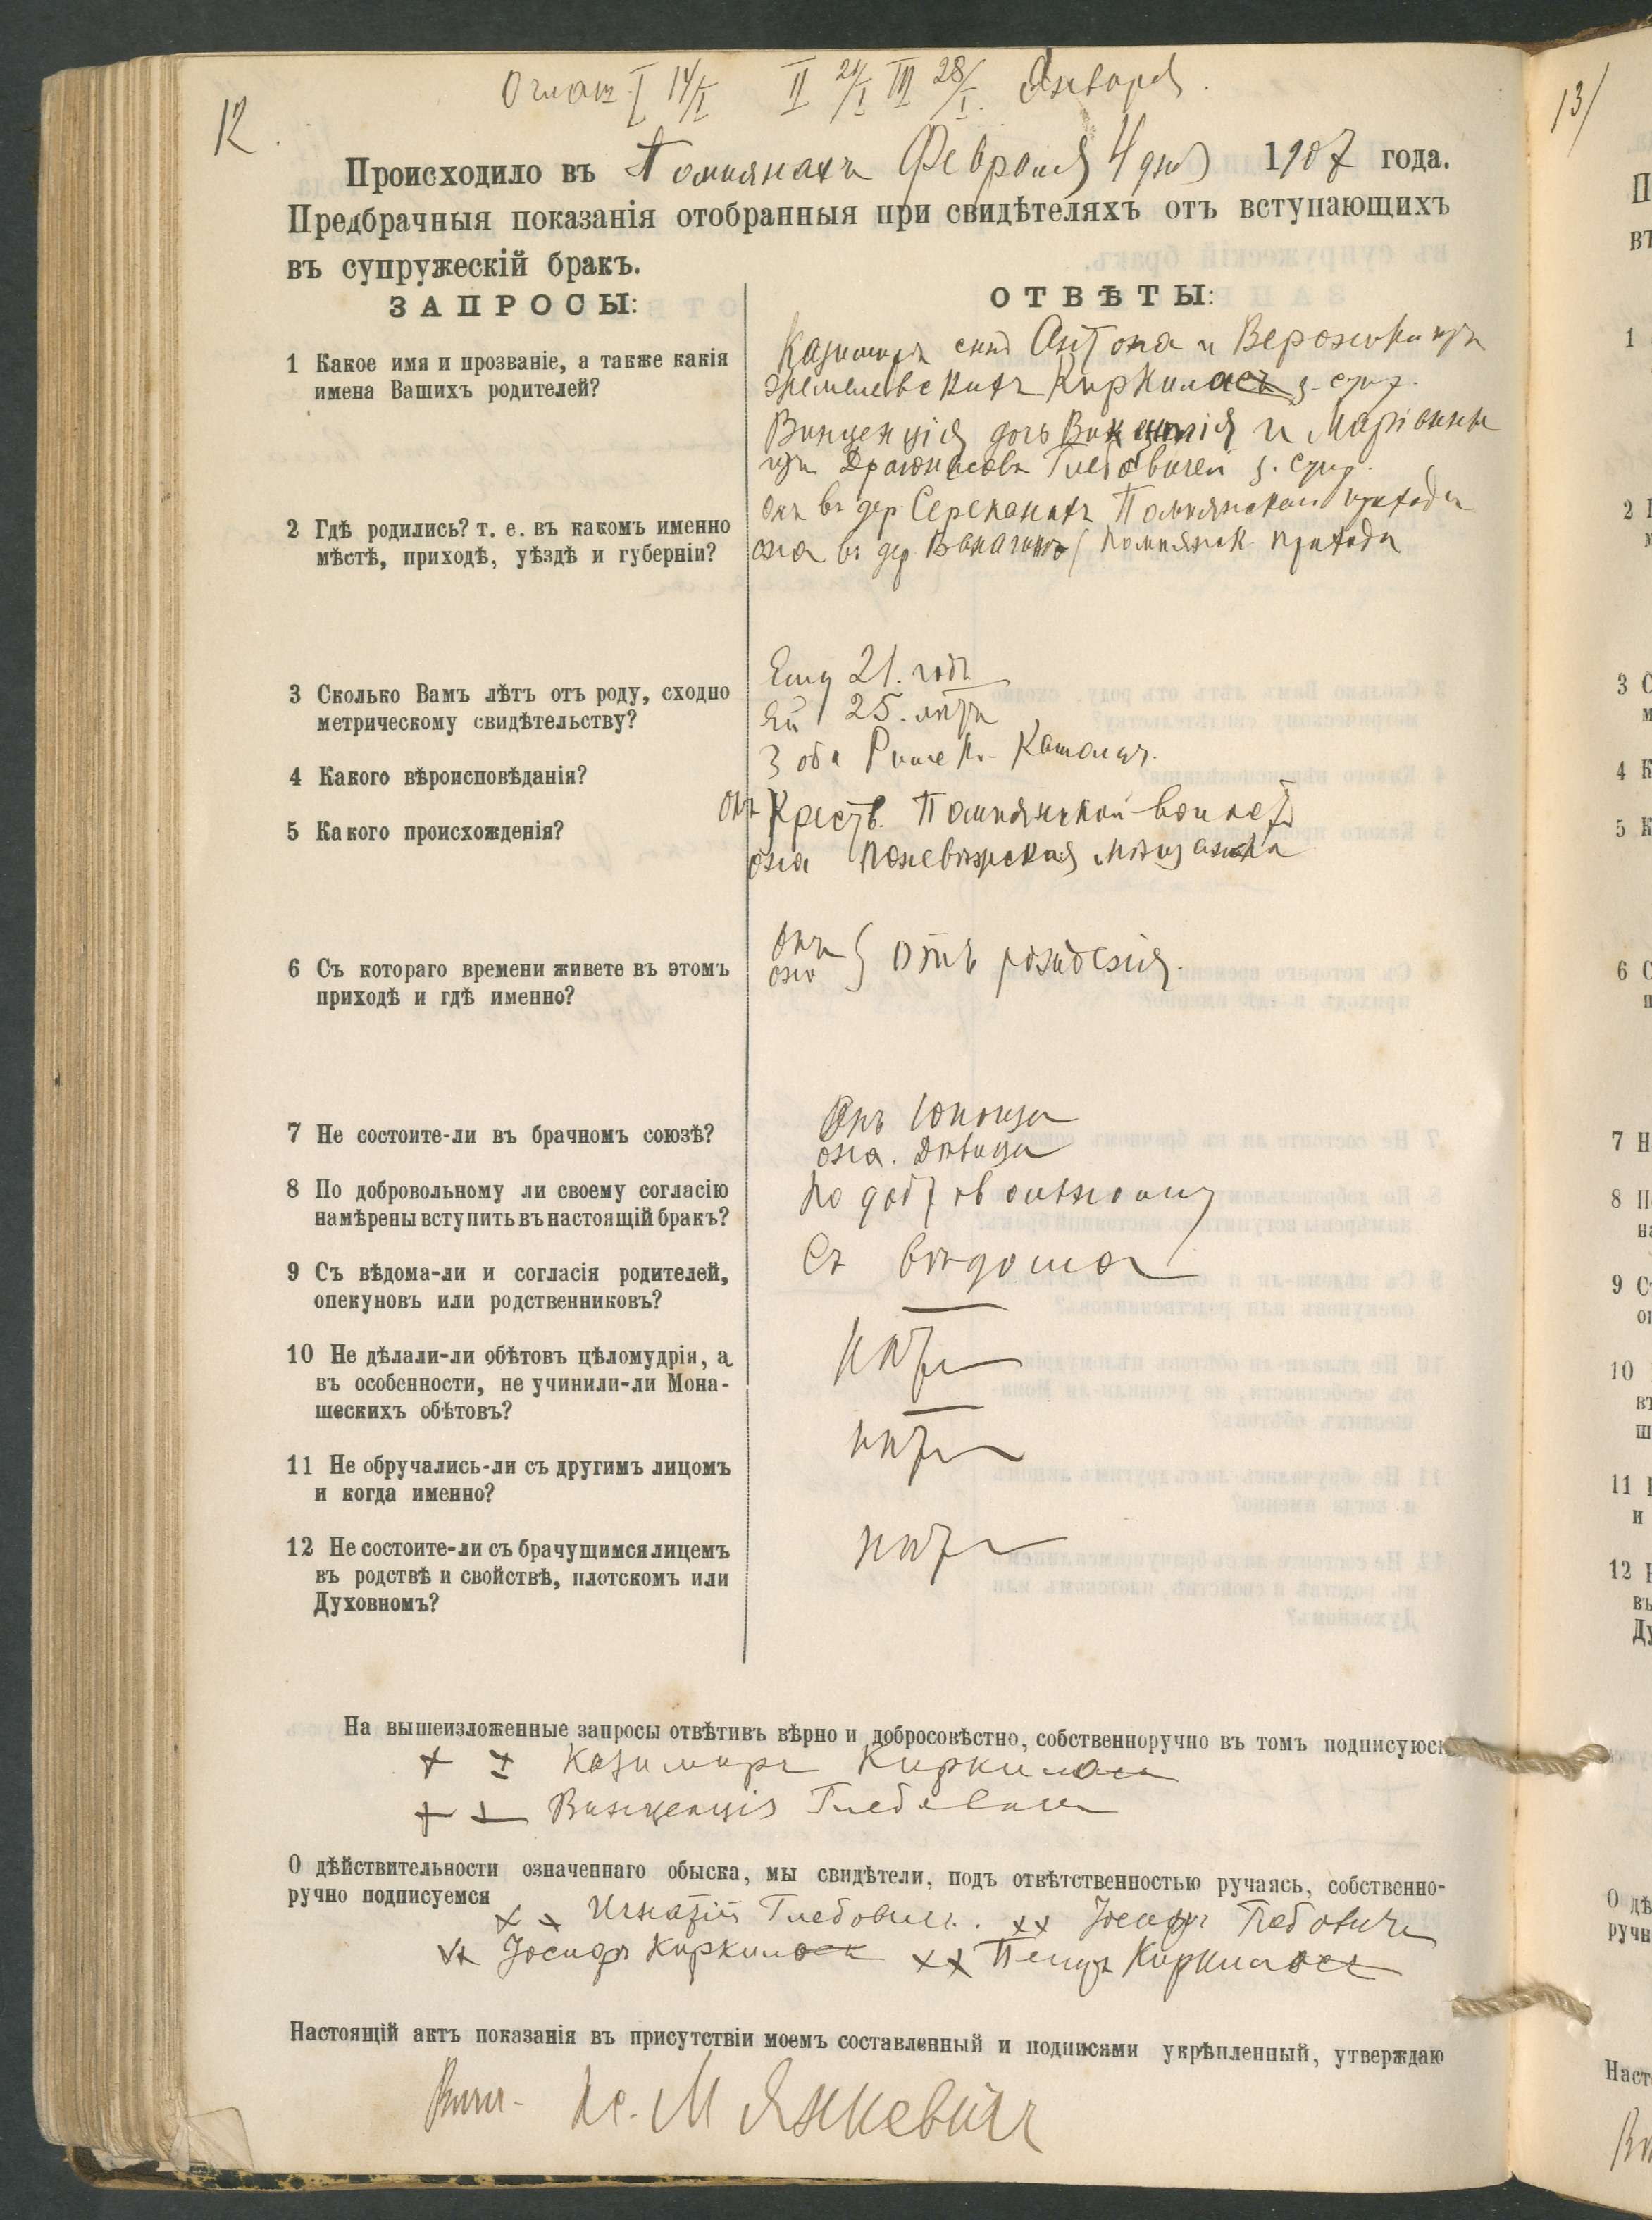 12.
Оглаш. I 14/I II 21/I III 28/I. Января.
Происходило въ Помпянахъ Февраля 4 дня 1907 года.
Предбрачныя показанія отобранныя при свидѣтеляхъ отъ вступающихъ
въ супружескій бракъ.
ЗАПРОСЫ:
ОТВѢТЫ:
1 Какое имя и прозваніе, а также какія
имена Вашихъ родителей?
Казимиръ сынъ Антона и Вероники изъ
Киркиласъ з. супр.
Винценція дочь Викентія и Маріанны
изъ Глебовичей з. супр.
2 Гдѣ родились? т. е. въ какомъ именно
мѣстѣ, приходѣ, уѣздѣ и губерніи?
онъ въ дер. Помпянскаго прихода
она въ дер. Помпянск. прихода
3 Сколько Вамъ лѣтъ отъ роду, сходно
метрическому свидѣтельству?
Ему 21. годъ
Ей 25. лѣтъ
4 Какого вѣроисповѣданія?
оба Римск.- Католич.
5 Какого происхожденія?
Онъ Крест. Помпянской волости
она Поневѣжская мѣщанка
6 Съ котораго времени живете въ этомъ
приходѣ и гдѣ именно?
Онъ
она } отъ рожденія.
7 Не состоите-ли въ брачномъ союзѣ?
Онъ Юноша
она. Дѣвица
8 По добровольному ли своему согласію
намѣрены вступить въ настоящій бракъ?
По добровольному
9 Съ вѣдома-ли и согласія родителей,
опекуновъ или родственниковъ?
Съ вѣдома
10 Не дѣлали-ли обѣтовъ цѣломудрія, а
въ особенности, не учинили-ли Мона-
шескихъ обѣтовъ?
нѣтъ
11 Не обручались-ли съ другимъ лицомъ
и когда именно?
нѣтъ
12 Не состоите-ли съ брачущимся лицемъ
въ родствѣ и свойствѣ, плотскомъ или
Духовномъ?
нѣтъ
На вышеизложенные запросы отвѣтивъ вѣрно и добросовѣстно, собственноручно въ томъ подписуюсь
+ + Казимиръ Киркилас
+ + Винценція Глебович
О дѣйствительности означеннаго обыска, мы свидѣтели, подъ отвѣтственностью ручаясь, собственно-
ручно подписуемся
х х Игнатій Глебович. хх Іосифъ Глебовичъ
хх Іосифъ Киркиласъ хх Петръ Киркиласъ
Настоящій актъ показанія въ присутствіи моемъ составленный и подписями укрѣпленный, утверждаю
Вик. Кс. М Янкевичъ
13/